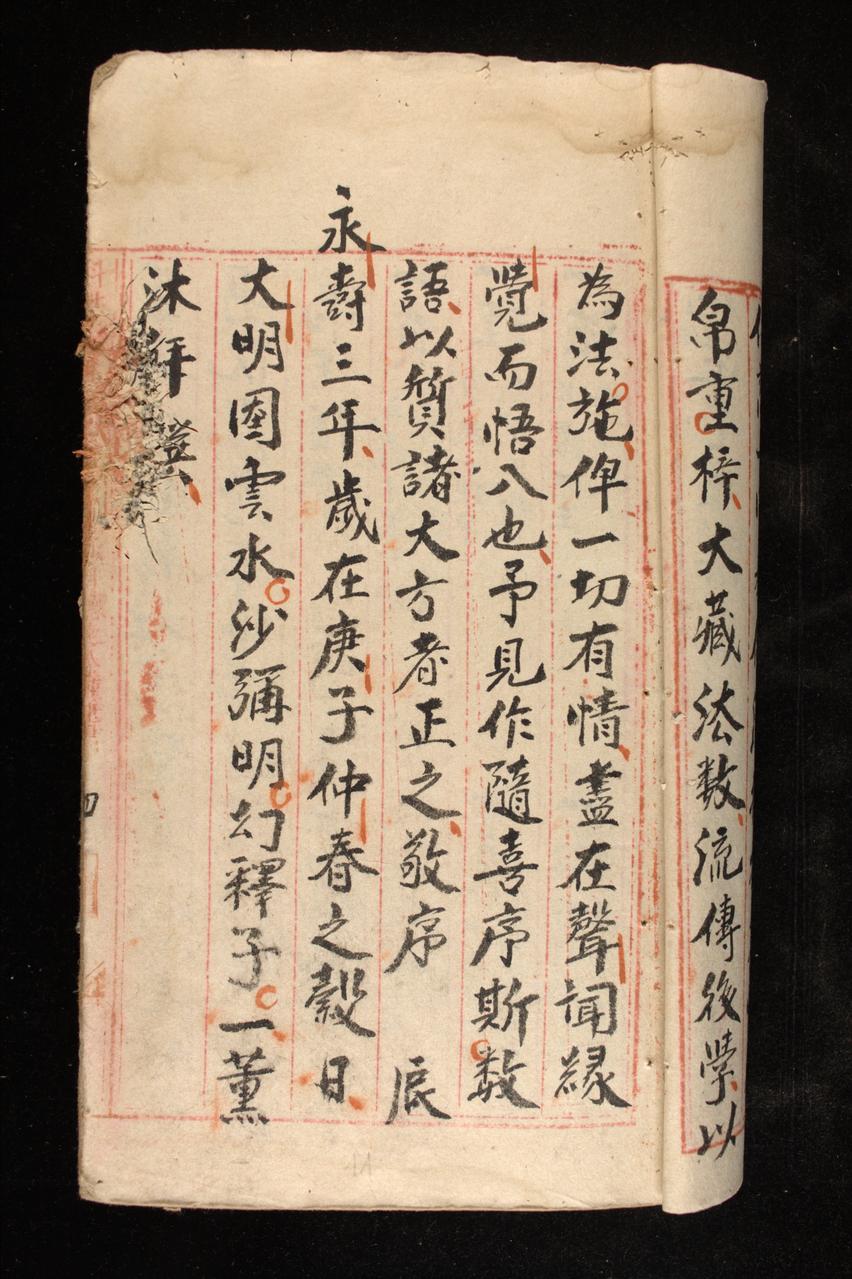 帛重梓大藏法数流傳後學以
為法施俾一切有情盡在聲聞緣
覺而悟入也予見作隨喜序斯数
語以質諸大方者正之敬序　辰
永壽三年歲在庚子仲春之穀日
大明國雲水沙彌明幻釋子一薰
沐